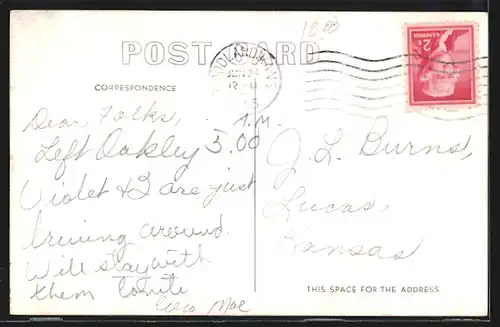 18.00
POST CARD
CORRESPONDENCE
2¢
JUN 24
Dear Folks,
Left Oakley 5.00 A.M.
Violet & I are just
driving around.
Will stay with
them tonite
Mae
J. L. Burns,
Lucas,
Kansas
THIS SPACE FOR THE ADDRESS